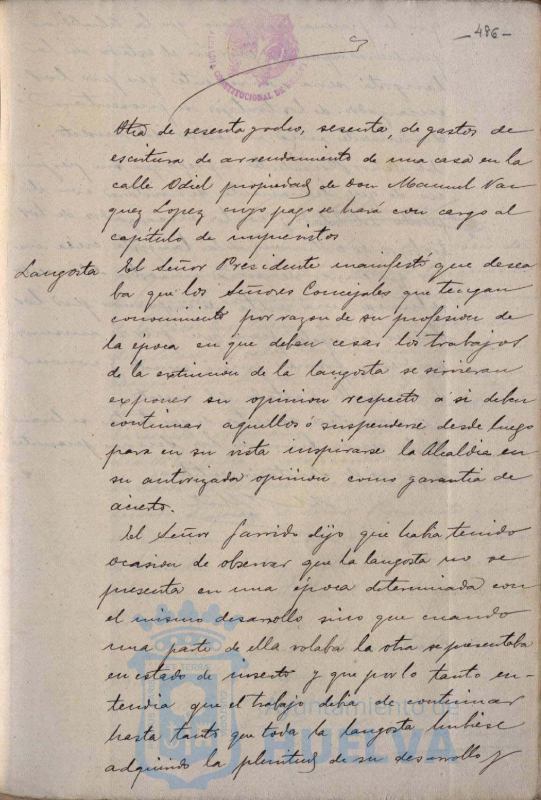 - 486 -
CONSTITUCIONAL DE
Otra de sesenta, sesenta, de gastos de
escritura de arrendamiento de una casa en la
calle Odiel propiedad de Don Manuel Vaz
quez Lopez cuyo pago se hará con cargo al
capítulo de imprevistos
Langosta
El Señor Presidente manifestó que desea
ba que los Señores Concejales que tengan
conocimiento por razon de su profesion de
la época en que deben cesar los trabajos
de la extincion de la langosta se sirvieran
exponer su opinion respecto á si deben
continuar aquellos ó suspenderse desde luego
para en su vista inspirarse la Alcaldia en
su autorizada opinion como garantia de
acierto.
El Señor Garrido dijo que habia tenido
ocasion de observar que la langosta no se
presenta en una época determinada con
el mismo desarrollo sino que cuando
una parte de ella volaba la otra se presentaba
en estado de insecto y que por lo tanto en-
tendia que el trabajo debia de continuar
hasta tanto que toda la langosta hubiese
adquirido la plenitud de su desarrollo y
Ayuntamiento de
HUELVA